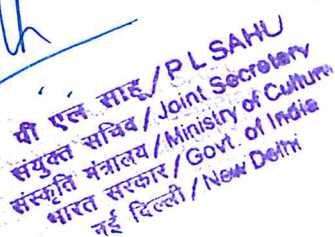 पी एल साहू/P L SAHU
संयुक्त सचिव/Joint Secretary
संस्कृति मंत्रालय/Ministry of Culture
भारत सरकार/Govt. of India
नई दिल्ली/New Delhi